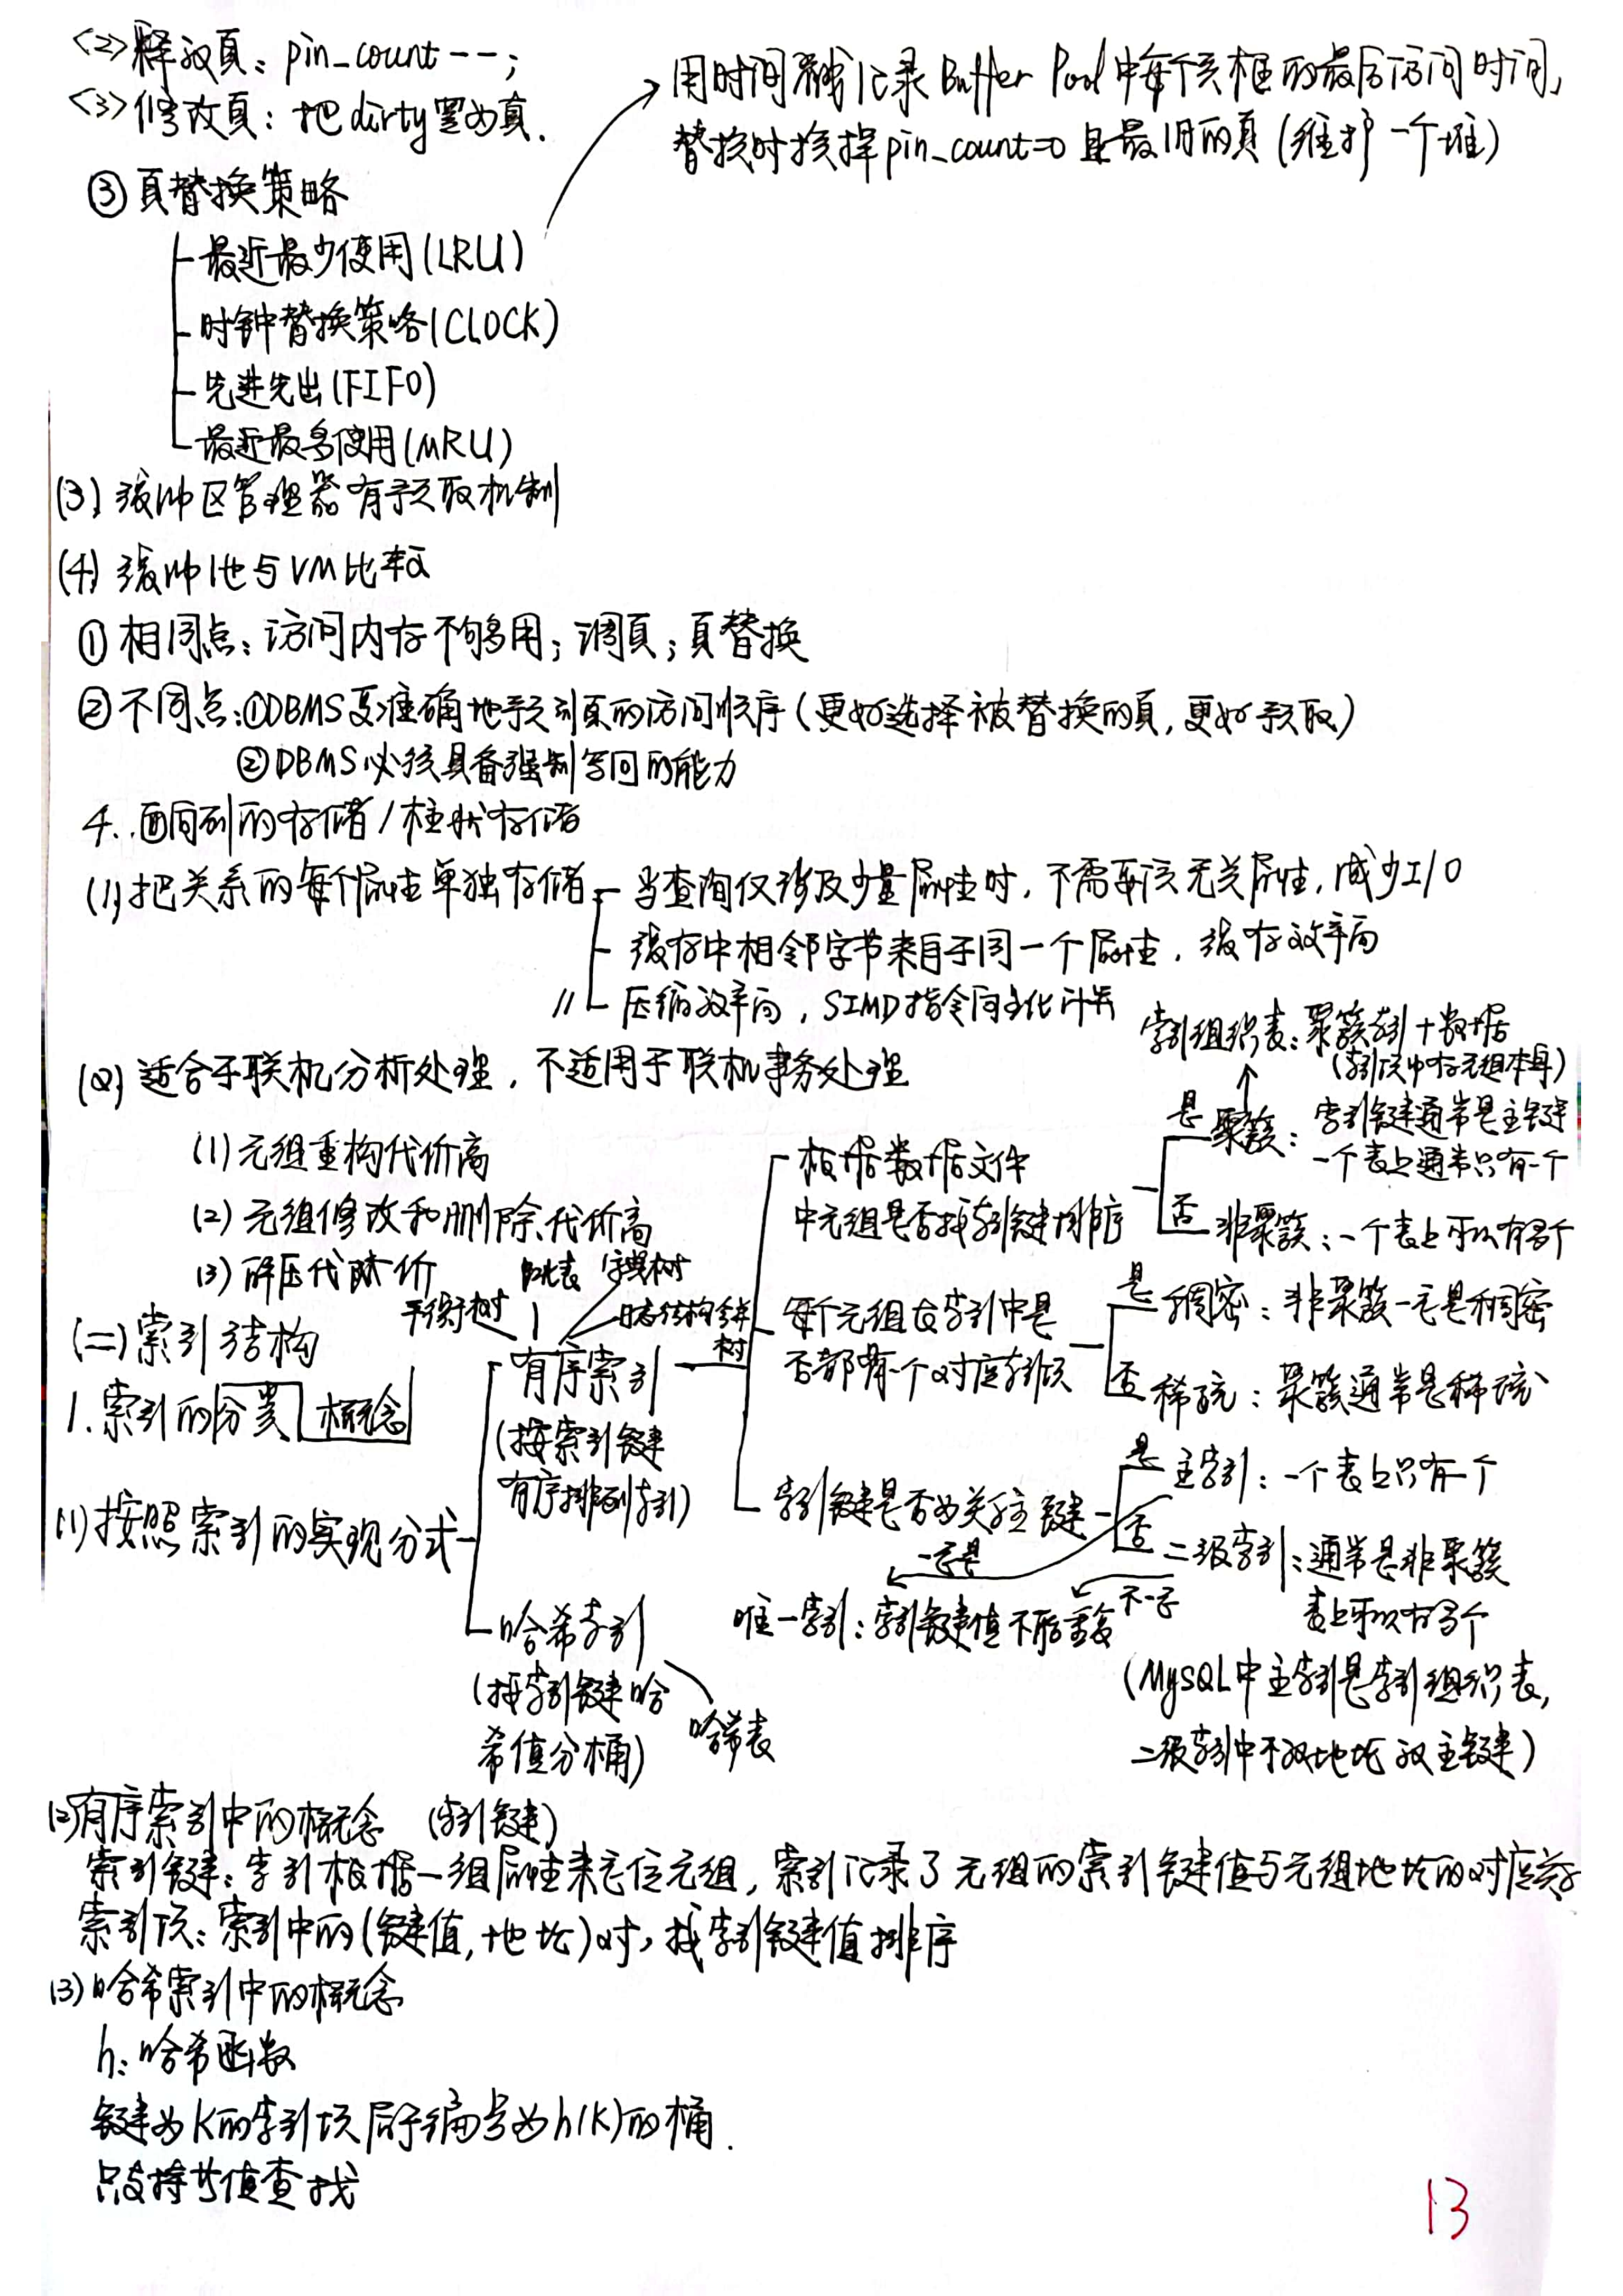 <2>释放页：pin_count--；
<3>修改页：把dirty置为真.
用时间戳记录Buffer Pool中每个页框的最后访问时间，
替换时选择pin_count=0且最旧的页（维护一个堆）
③页替换策略
最近最少使用(LRU)
时钟替换策略(CLOCK)
先进先出(FIFO)
最近最多使用(MRU)
(3)缓冲区管理器有预取机制
(4)缓冲池与VM比较
①相同点：访问内存不够用；调页；页替换
②不同点：①DBMS更准确地预测页的访问顺序（更好选择被替换的页，更好预取）
②DBMS必须具备强制写回的能力
4.面向列的存储/柱状存储
(1)把关系的每个属性单独存储
当查询仅涉及少量属性时，不需要读无关属性，减少I/O
缓存中相邻字节来自于同一个属性，缓存效率高
压缩效率高，SIMD指令向量化计算
(2)适合于联机分析处理，不适用于联机事务处理
(1)元组重构代价高
(2)元组修改和删除代价高
(3)解压代价
(二)索引结构
1.索引的分类 概念
(1)按照索引的实现分式
平衡树
跳表
字典树
日志结构合并树
有序索引
(按索引键
有序排列索引)
根据数据文件
中元组是否按索引键排序
是 聚簇：索引键通常是主键
一个表上通常只有一个
索引组织表：聚簇索引+数据
(索引项中存元组本身)
否 非聚簇：一个表上可以有多个
每个元组在索引中是
否都有一个对应索引项
是 稠密：非聚簇一定是稠密
否 稀疏：聚簇通常是稀疏
索引键是否为关系主键
是 主索引：一个表上只有一个
否 二级索引：通常是非聚簇
表上可以有多个
一定是
不一定
唯一索引：索引键值不能重复
(MySQL中主索引是索引组织表，
二级索引中不放地址放主键)
哈希索引
(按索引键哈
希值分桶)
哈希表
(2)有序索引中的概念 (索引键)
索引键：索引根据一组属性来定位元组，索引记录了元组的索引键值与元组地址的对应关系
索引项：索引中的(键值，地址)对，按索引键值排序
(3)哈希索引中的概念
h：哈希函数
键为K的索引项属于编号为h(K)的桶.
只支持等值查找
13